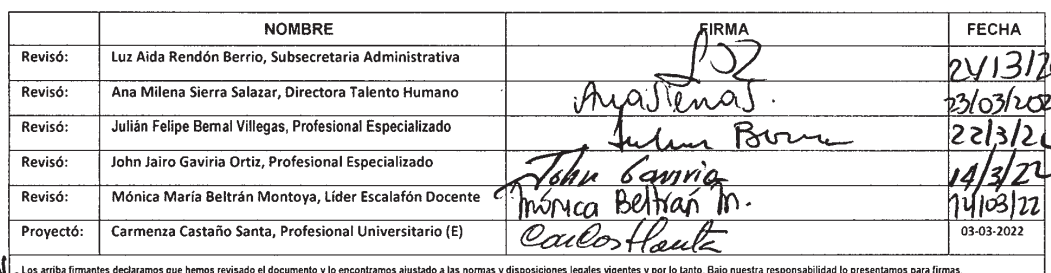 NOMBRE FIRMA FECHA
Revisó: Luz Aida Rendón Berrio, Subsecretaria Administrativa LUZ 24/3/2
Revisó: Ana Milena Sierra Salazar, Directora Talento Humano 23/03/202
Revisó: Julián Felipe Bernal Villegas, Profesional Especializado 22/3/2
Revisó: John Jairo Gaviria Ortiz, Profesional Especializado John Gaviria 14/3/22
Revisó: Mónica María Beltrán Montoya, Líder Escalafón Docente Mónica Beltrán M. 14/03/22
Proyectó: Carmenza Castaño Santa, Profesional Universitario (E) 03-03-2022
Los arriba firmantes declaramos que hemos revisado el documento y lo encontramos ajustado a las normas y disposiciones legales vigentes y por lo tanto. Bajo nuestra responsabilidad lo presentamos para firmas